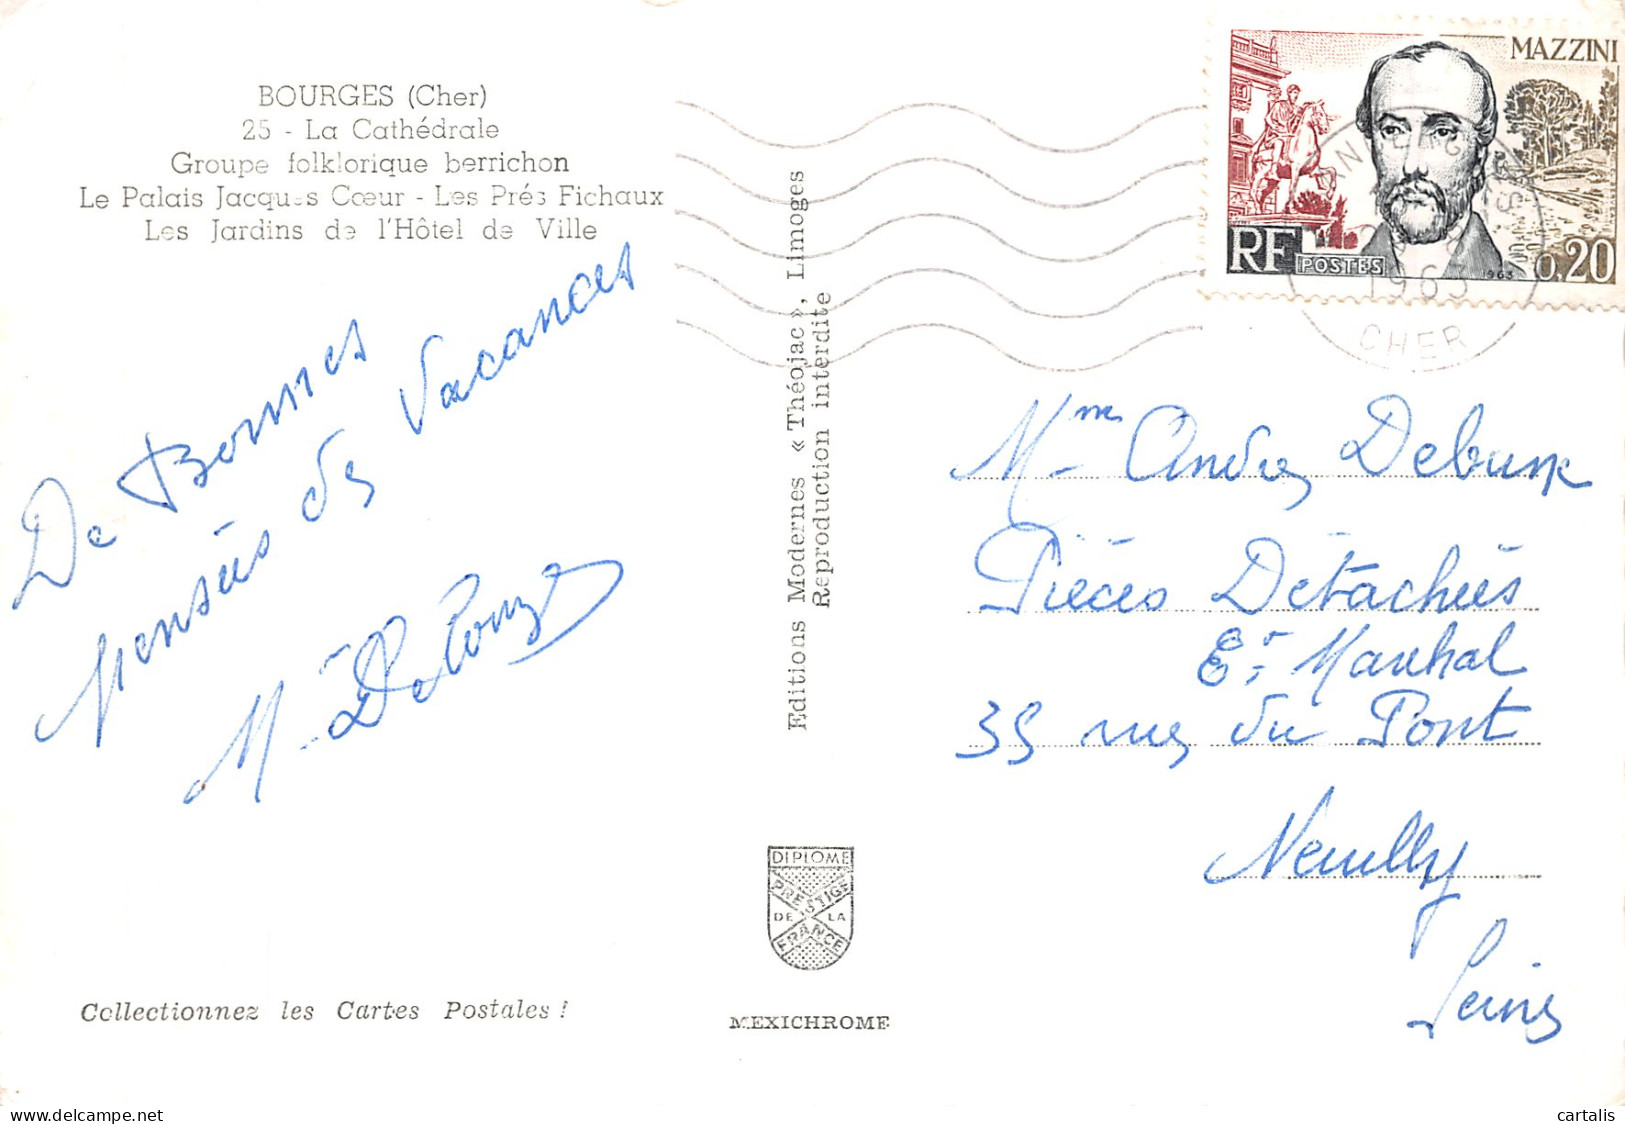 BOURGES (Cher)
25 - La Cathédrale
Groupe folklorique berrichon
Le Palais Jacques Cœur - Les Prés Fichaux
Les Jardins de l'Hôtel de Ville
De Bonnes
pensées de Vacances
M. Delouze
Collectionnez les Cartes Postales !
Editions Modernes « Théojac », Limoges
Reproduction interdite
DIPLOME
PRESTIGE
DE LA
FRANCE
MEXICHROME
MAZZINI
RF POSTES
1963
0,20
1963
CHER
Mme Andre
Pièces Détachées
Et Marchal
35 rue du Pont
Neuilly
Seine
cartalis
delcampe.net